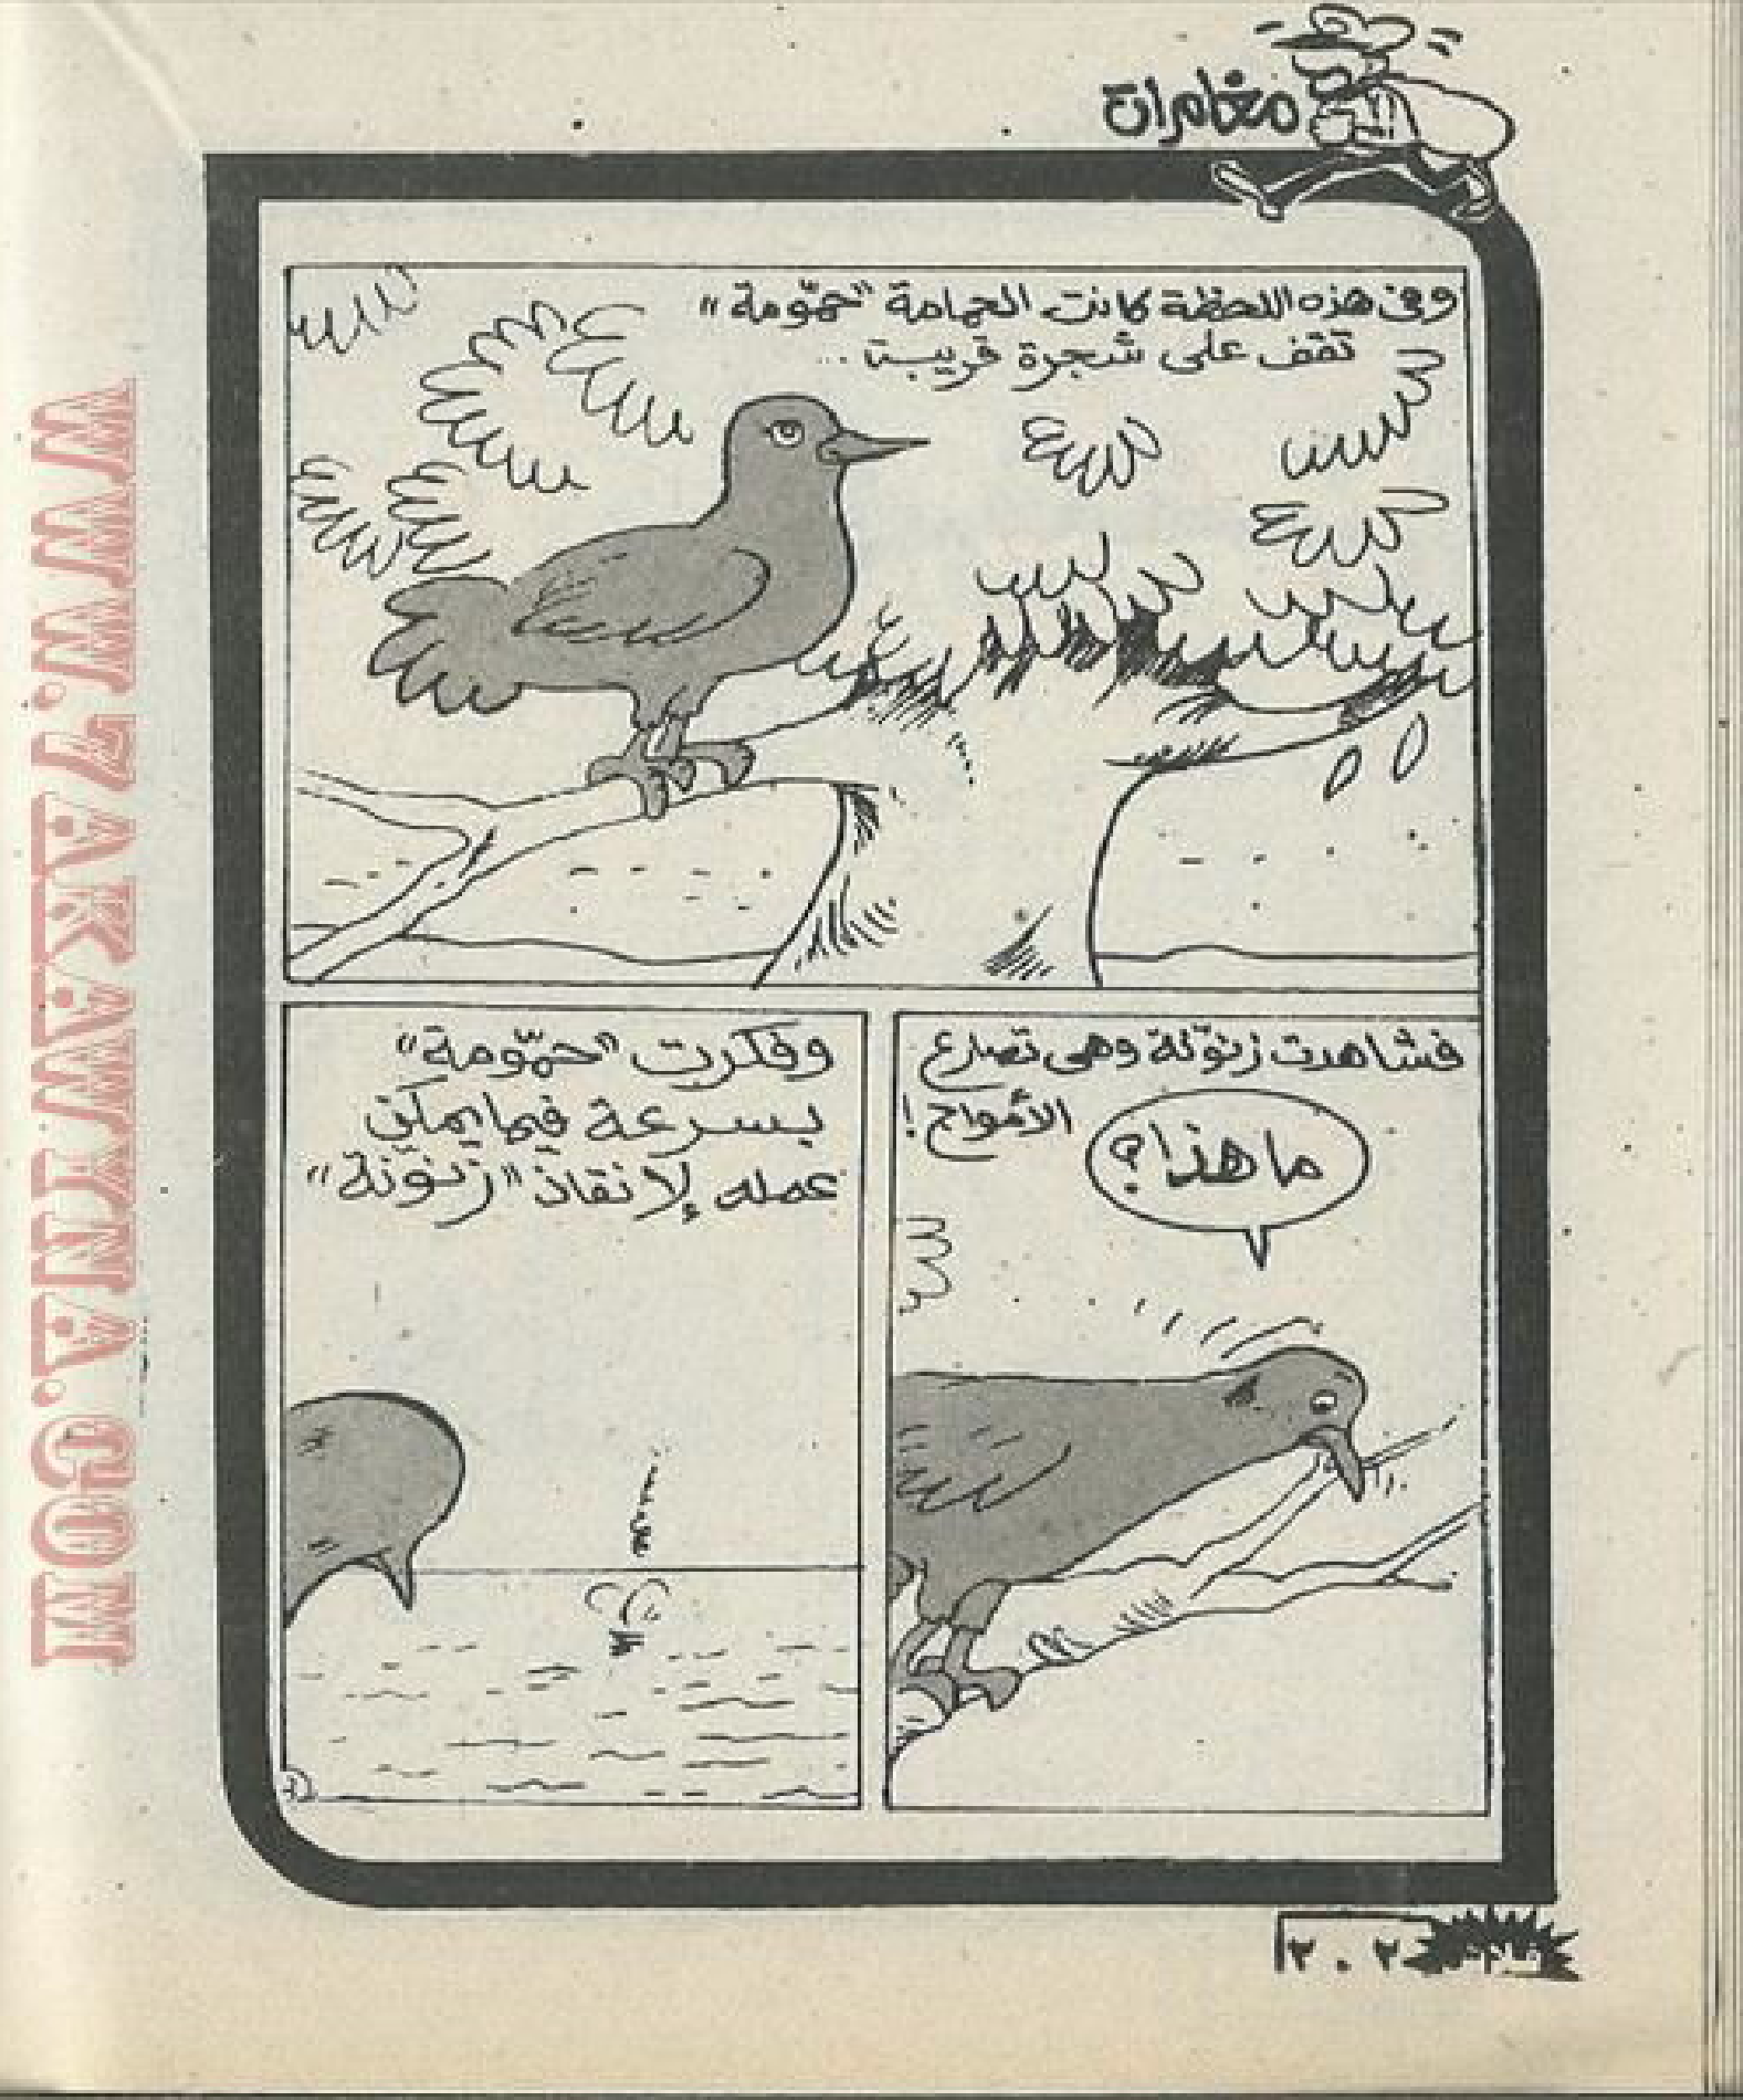 مغامرات
وفى هذه اللحظة كانت الحمامة "حمّومة"
تقف على شجرة قريبة...
فشاهدت زنوّنة وهى تصارع
الأمواج!
ما هذا؟
وفكرت "حمّومة"
بسرعة فيما يمكن
عمله لإنقاذ "زنونة"
٢٠٢
WWW.7AKAWINA.COM